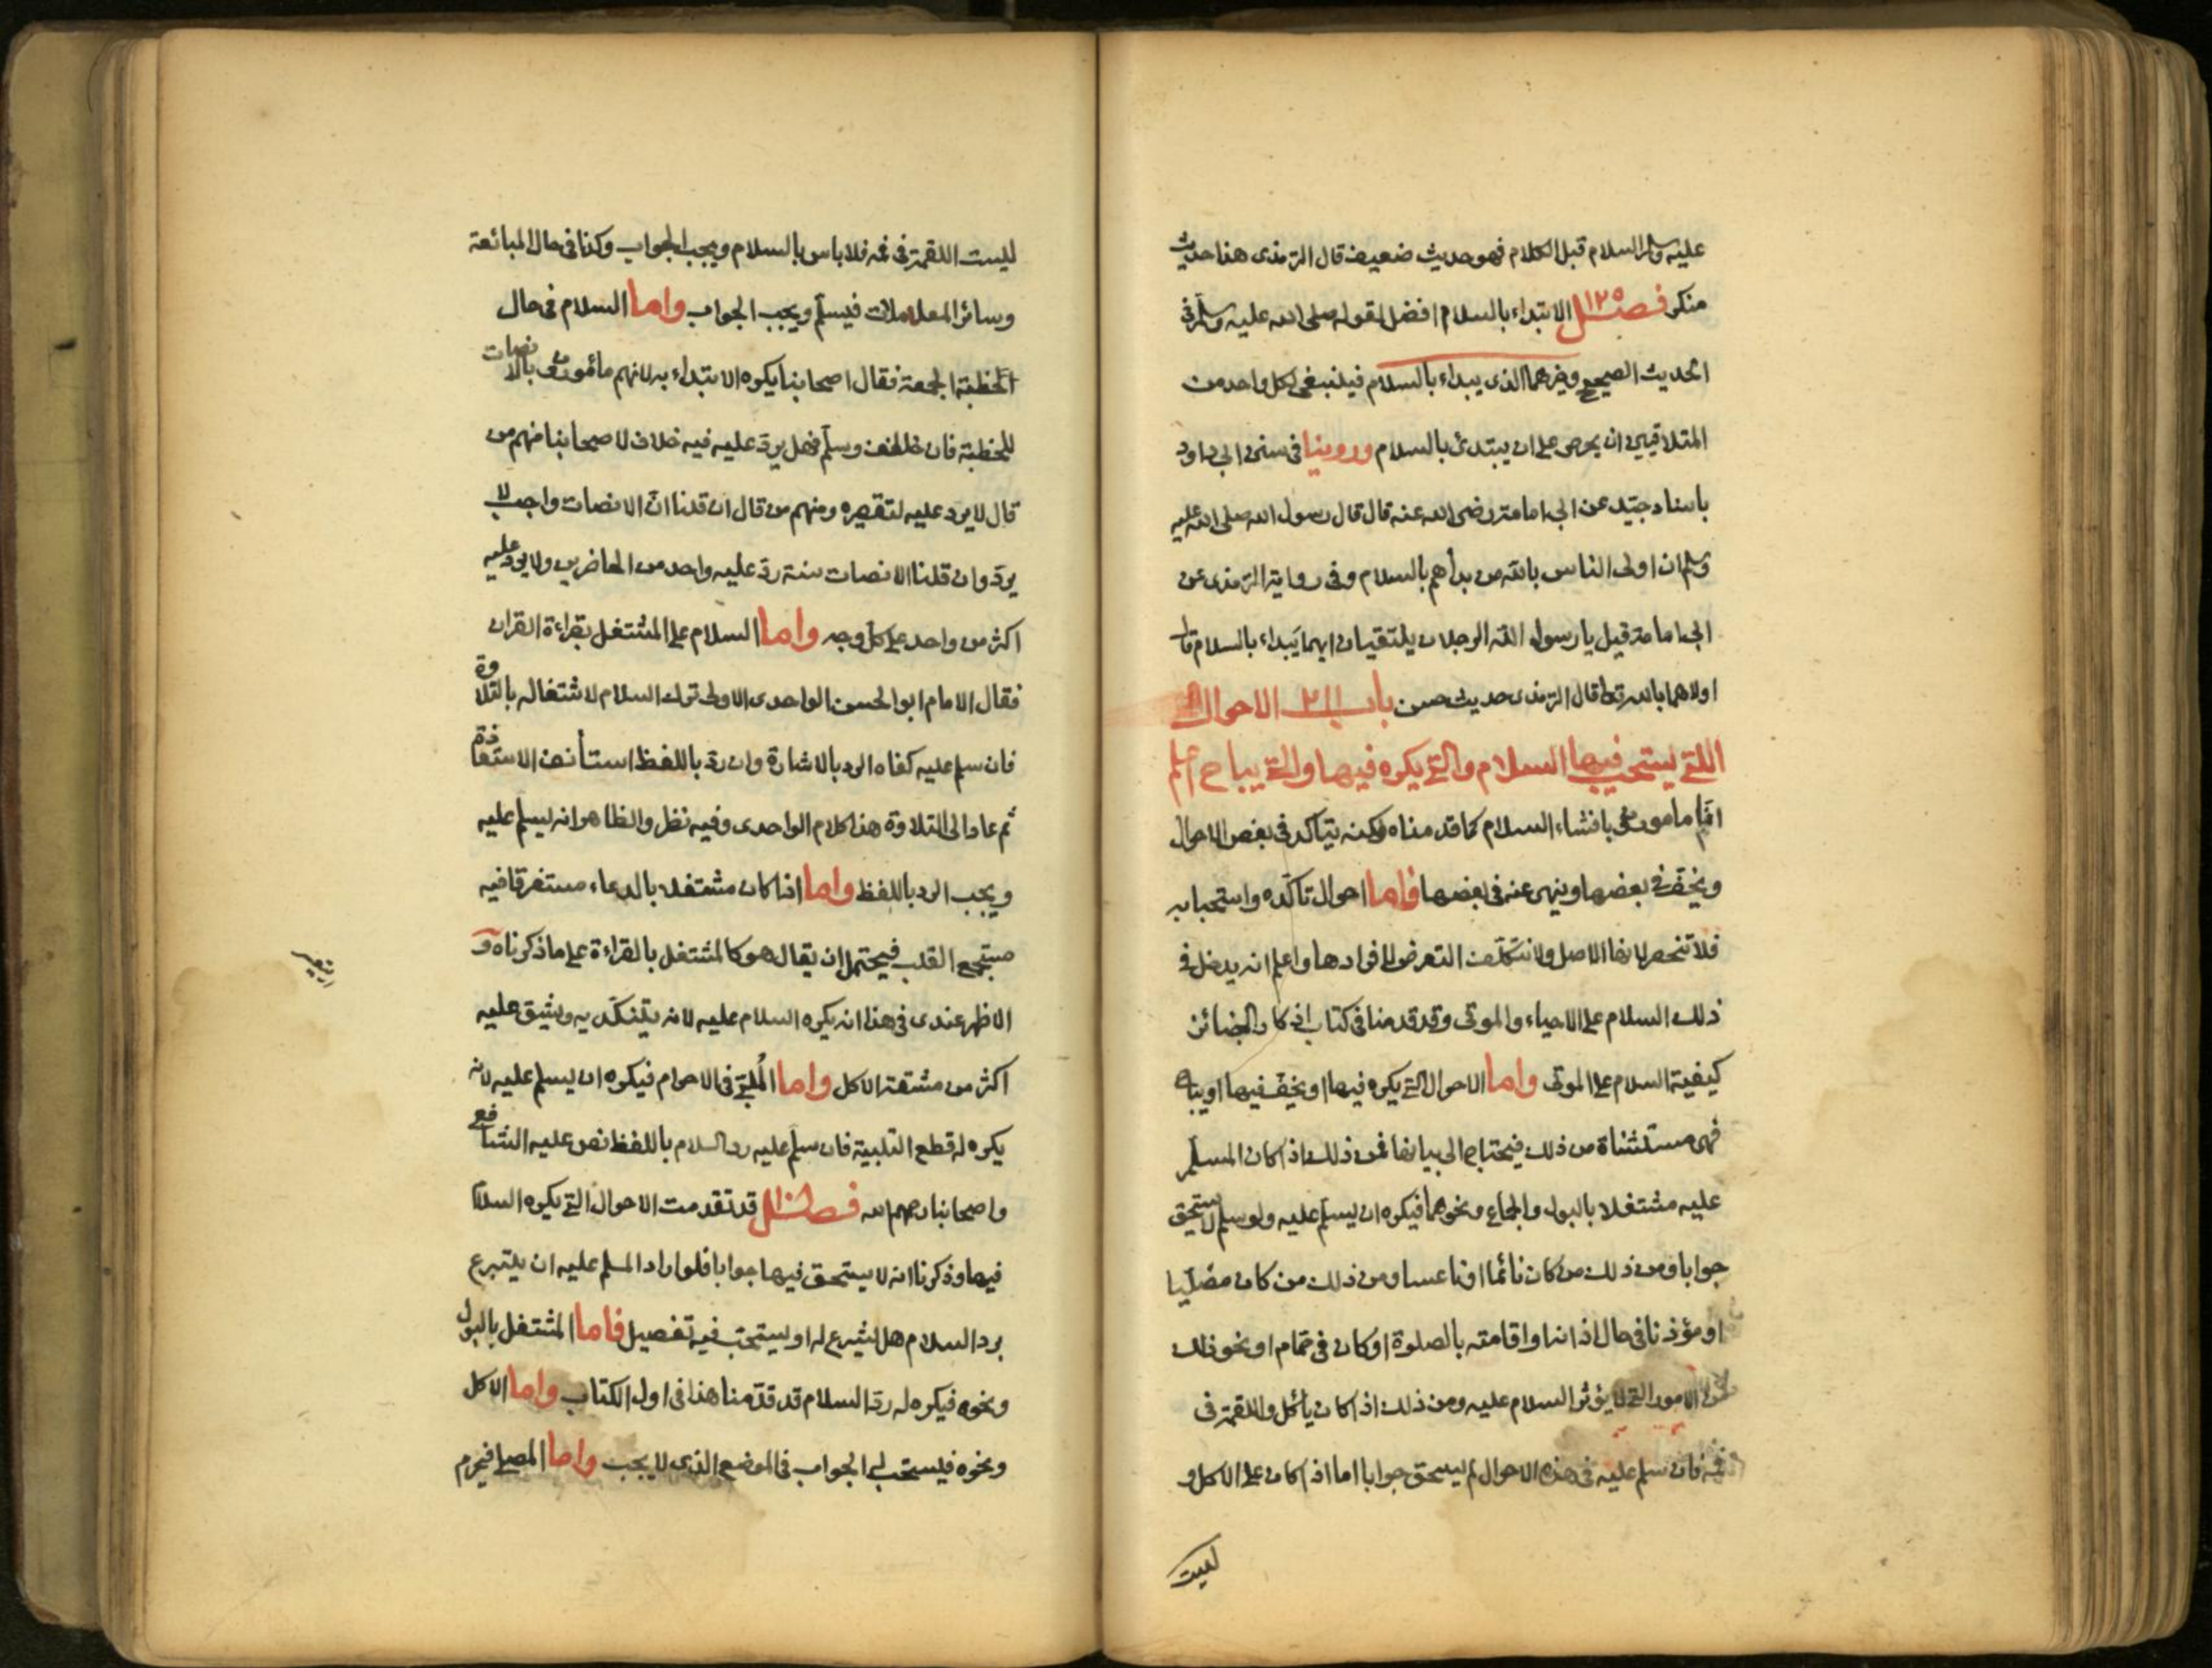 عليه وسلم السلام قبل الكلام فهو حديث ضعيف قال الترمذى هذا حديث
منكر فصل ١٢٥ الابتداء بالسلام افضل لقوله صلى الله عليه وسلم فى
الحديث الصحيح وخيرهما الذى يبداء بالسلام فينبغى لكل واحد من
المتلاقيين ان يحرص على ان يبتدئ بالسلام وروينا فى سنن ابى داود
باسناد جيّد عن ابى امامة رضى الله عنه قال قال رسول الله صلى الله عليه
وسلم ان اولى الناس بالله من بدأهم بالسلام وفى رواية الترمذى عن
ابى امامة قيل يا رسول الله الرجلان يلتقيان ايهما يبداء بالسلام قال
اولاهما بالله تعالى قال الترمذى حديث حسن باب الاحوال
اللتى يستحب فيها السلام والتى يكره فيها والتى يباح اعلم
انّا مامورون بافشاء السلام كما قدمناه لكنه يتأكد فى بعض الاحوال
ويخفّ فى بعضها وينهى عنه فى بعضها فاما احوال تأكّده واستحبابه
فلا تنحصر لانها الاصل ولا نتكلّف التعرض لافرادها واعلم انه يدخل فى
ذلك السلام على الاحياء والموتى وقد قدمنا فى كتاب اذكار الجنائز
كيفية السلام على الموتى واما الاحوال التى يكره فيها او يخفّ فيها او يباح
فهى مستثناة من ذلك فيحتاج الى بيانها فمن ذلك اذا كان المسلّم
عليه مشتغلا بالبول والجماع ونحوهما فيكره ان يسلّم عليه ولو سلم لا يستحق
جوابا ومن ذلك من كان نائما او ناعسا ومن ذلك من كان مصلّيا
او مؤذنا فى حال اذانه او اقامته بالصلوة او كان فى حمام او نحو ذلك
من الامور التى لا يؤثر السلام عليه ومن ذلك اذا كان يأكل واللقمة فى
فمه فان سلم عليه فى هذه الاحوال لم يستحق جوابا اما اذا كان على الاكل و
ليست
ليست اللقمة فى فمه فلا باس بالسلام ويجب الجواب وكذا فى حال المبائعة
وسائر المعاملات فيسلّم ويجب الجواب واما السلام فى حال
الخطبة الجمعة فقال اصحابنا يكره الابتداء به لانهم مأمورون بالانصات
للخطبة فان خالف وسلّم فهل يردّ عليه فيه خلاف لاصحابنا منهم من
قال لا يرد عليه لتقصيره ومنهم من قال ان قلنا انّ الانصات واجب لا
يردّ وان قلنا الانصات سنة ردّ عليه واحد من الحاضرين ولا يرد عليه
اكثر من واحد على كل وجه واما السلام على المشتغل بقراءة القران
فقال الامام ابو الحسن الواحدى الاولى ترك السلام لاشتغاله بالتلاوة
فان سلم عليه كفاه الرد بالاشارة وان ردّ باللفظ استأنف الاستعاذة
ثم عاد الى التلاوة هذا كلام الواحدى وفيه نظر والظاهر انه يسلم عليه
ويجب الرد باللفظ واما اذا كان مشتغلا بالدعاء مستغرقا فيه
مستجمع القلب فيحتمل ان يقال هو كالمشتغل بالقراءة على ما ذكرناه و
الاظهر عندى فى هذا انه يكره السلام عليه لانه يتنكّد به ويشق عليه
اكثر من مشقة الاكل واما المُلبّى فى الاحرام فيكره ان يسلم عليه لانه
يكره له قطع التلبية فان سلّم عليه رد السلام باللفظ نص عليه الشافعى
واصحابنا رحمهم الله فصل قد تقدمت الاحوال التى يكره السلام
فيها وذكرنا انه لا يستحق فيها جوابا فلو اراد المسلم عليه ان يتبرع
برد السلام هل يشرع له او يستحبّ فيه تفصيل فاما المشتغل بالبول
ونحوه فيكره له ردّ السلام قد قدّمنا هذا فى اول الكتاب واما الاكل
ونحوه فيستحب له الجواب فى الموضع الذى لا يجب واما المصلى فيحرم